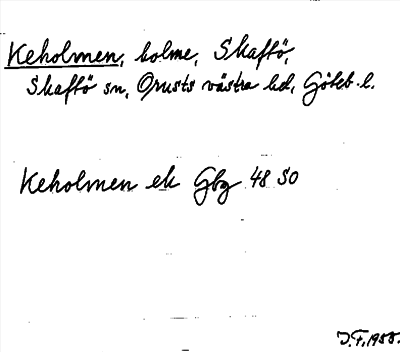 Keholmen, holme, Skaftö,
Skaftö sn, Orusts västra hd, Göteb. l.
Keholmen ek Gbg 48 SO
J.F. 1958.